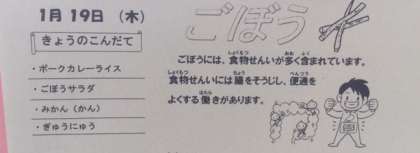 1月19日 (木)
きょうのこんだて
・ポークカレーライス
・ごぼうサラダ
・みかん(かん)
・ぎゅうにゅう
ごぼう
ごぼうには、食物せんいが多く含まれています。
食物せんいには腸をそうじし、便通を
よくする働きがあります。